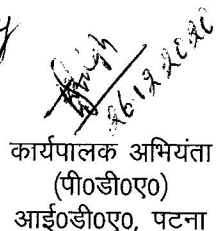 26.12.2020
कार्यपालक अभियंता
(पी०डी०ए०)
आई०डी०ए०, पटना